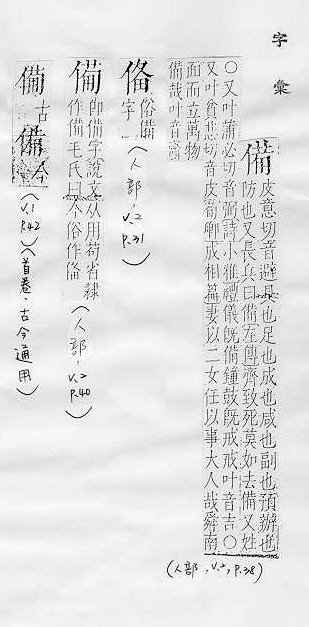 字彙
備 皮意切音避具也足也成也咸也副也預辦也
防也又長兵曰備左傳齊致死莫如去備又姓
○又叶蒲必切音弼詩小雅禮儀既備鐘鼓既戒戒叶音吉○
又叶貧悲切音皮荀卿成相篇妻以二女任以事大人哉舜南
面而立萬物
備哉叶音
(人部,V.2,P.38)
俻 俗備
字 (人部,V.2
P.31)
俻 即備字說文从用苟省隸
作備毛氏曰今俗作俻 (人部,V.2
P.40)
古 備 今 (V.1
P.42) (首卷·古今通用)